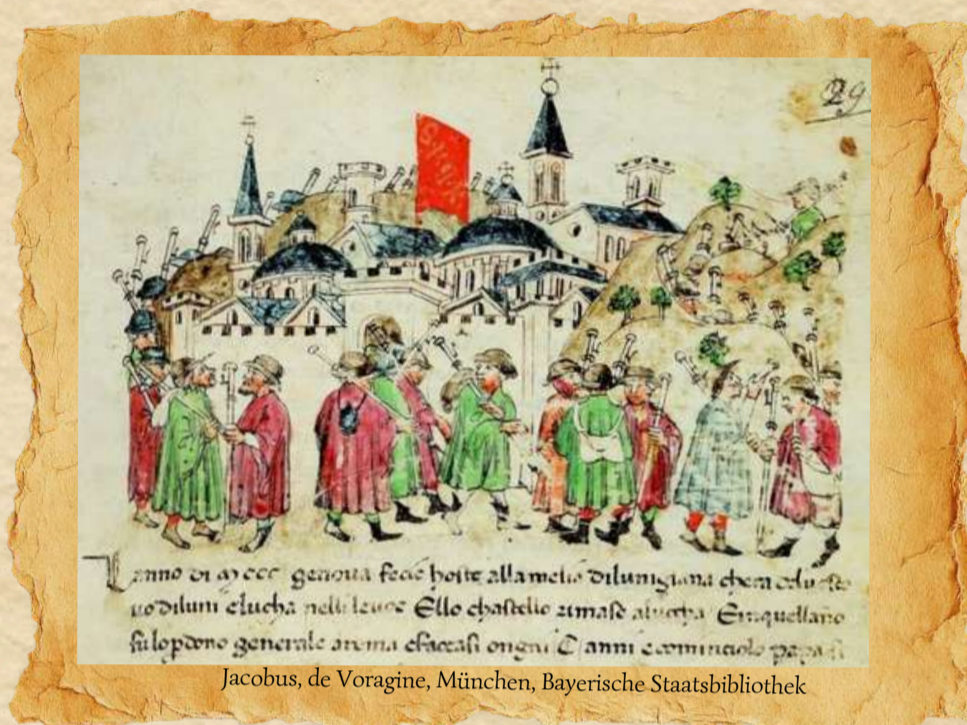 29
S·P·Q·R
anno di mccc genova fecie hoste alla melia dilunigiana chera
vo diluni elucha Ello chastello rimase alucha Einquellano
fu lo pdono generale aroma efaccasi ongni C anni ecominciolo papa
Jacobus, de Voragine, München, Bayerische Staatsbibliothek